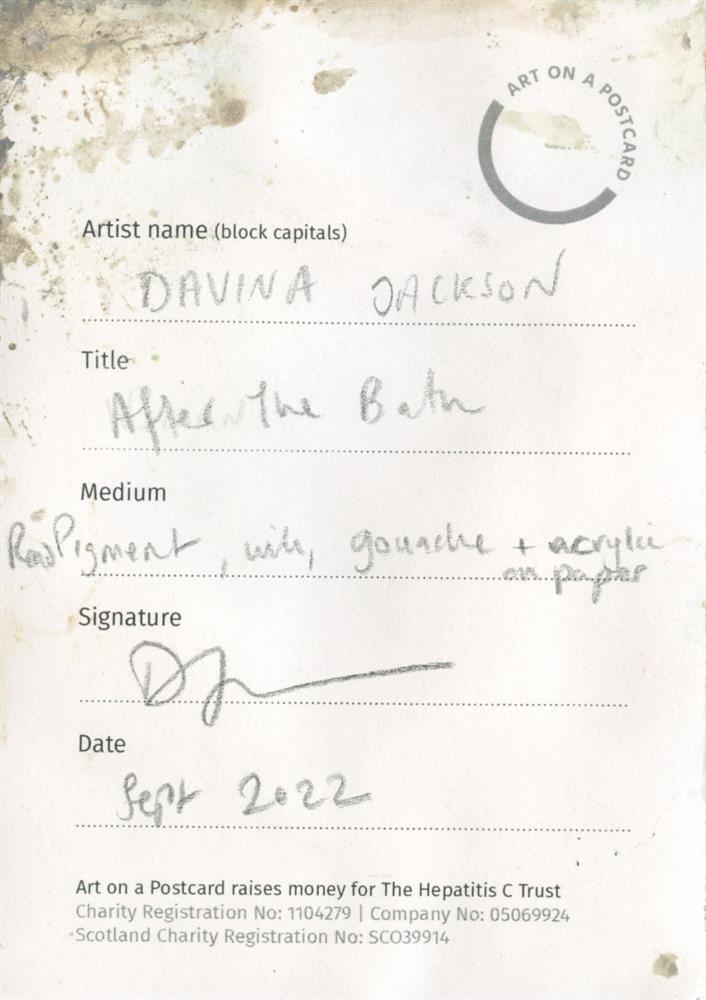 ART ON A POSTCARD
Artist name (block capitals)
DAVINA JACKSON
Title
After The Bath
Medium
Raw Pigment, ink, gouache + acrylic
on paper
Signature
DJ
Date
Sept 2022
Art on a Postcard raises money for The Hepatitis C Trust
Charity Registration No: 1104279 | Company No: 05069924
Scotland Charity Registration No: SCO39914